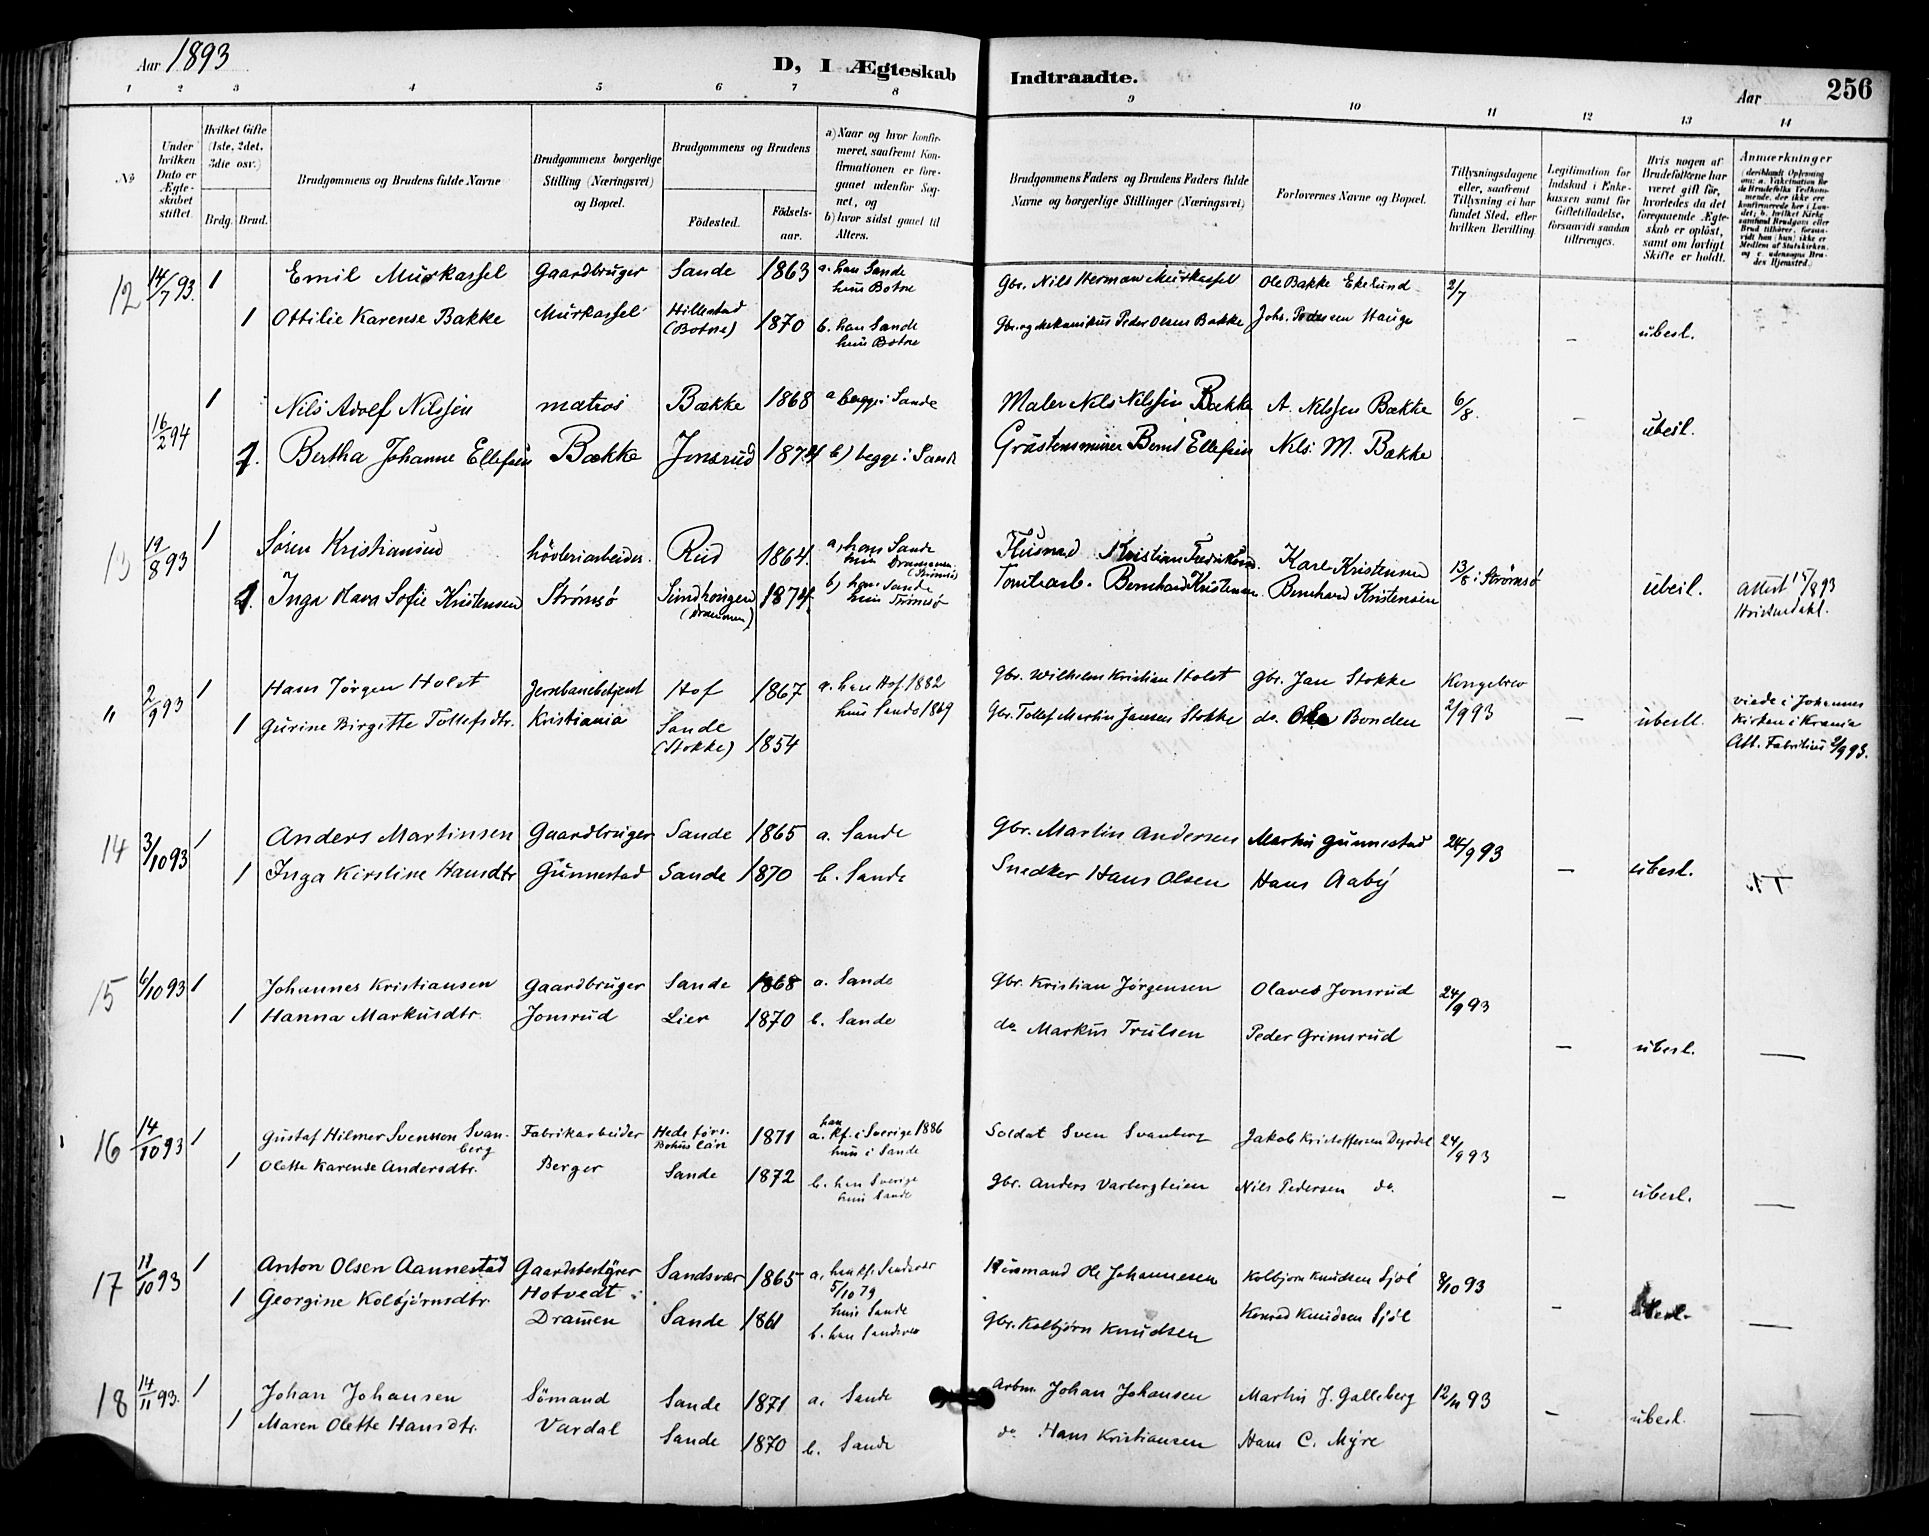 Aar 1893
D, I Ægteskab Indtraadte.
Aar 256
1 2 3 4 5 6 7 8 9 10 11 12 13 14
No
Under hvilken Dato er Ægteskabet stiftet.
Hvilket Gifte (1ste, 2det, 3die osv.)
Brdg. Brud.
Brudgommens og Brudens fulde Navne
Brudgommens borgerlige Stilling (Næringsvei) og Bopæl.
Brudgommens og Brudens
Födested. Födsels-aar.
a) Naar og hvor konfirmeret, saafremt Konfirmationen er foregaaet udenfor Sognet, og
b) hvor sidst gaaet til Alters.
Brudgommens Faders og Brudens Faders fulde Navne og borgerlige Stillinger (Næringsvei)
Forlovernes Navne og Bopæl.
Tillysningsdagene eller, saafremt Tillysning ei har fundet Sted, efter hvilken Bevilling.
Legitimation for Indskud i Enkekassen samt for Giftetilladelse, forsaavidt saadan tiltrænges.
Hvis nogen af Brudefolkene har været gift før, hvorledes da det foregaaende Ægteskab er opløst, samt om lovligt Skifte er holdt.
Anmærkninger
12 14/7 93. 1 Emil Murkassel Gaardbruger Sande 1863 a. han Sande hun Botne Gbr. Nils Herman Murkassel Ole Bakke Ekelund 2/7
1 Ottilie Karense Bakke Murkassel Hillestad (Botne) 1870 b. han Sande hun Botne Gbr. og Mekanikus Peder Olsen Bakke Johs. Pedersen Hauge – ubesl.
16/2 94 1 Nils Adolf Nilssen matros Bække 1868 a begge i Sande Maler Nils Nilssen Bække A. Nilssen Bække 6/8. –
1. Bertha Johanne Ellefsen Bække Jonsrud 1874 b) begge i Sande Gråstensminer Bernt Ellefsen Nils M. Bække ubesl.
13 19/8 93 1 Søren Kristiansen hövleriarbeider. Rud 1864. a, han Sande hun Drammen (Strømsø) Husmd Kristian Fredriksen. Karl Kristensen 13/8 i Strømsø
1. Inga Mara Sofie Kristensen Strømsø Sundhaugen (Drammen) 1874 b) han Sande hun Strømsø Tomtearb. Bernhard Kristensen. Bernhard Kristensen ubesl. Attest 14/8 93
" 2/9 93 1 Hans Jörgen Holst Jernbanebetjent Hof 1867 a. han Hof 1882 hun Sande 1869 Gbr. Wilhelm Kristian Holst Gbr. Jan Stokke Kongebrev 2/9 93
1 Gurine Birgitte Tollefsdtr. Kristiania Sande (Stokke) 1854 Gbr. Tollef Martin Jansen Stokke do. Ole Bonden – ubesl. viede i Johannes Kirken i Krania Att. Fabritius 2/9 93.
14 3/10 93 1 Anders Martinsen Gaardbruger Sande 1865 a. Sande Gbr. Martin Andersen Martin Gunnestad 24/9 93
1 Inga Kirstine Hansdtr Gunnestad Sande 1870 b. Sande Snedker Hans Olsen Hans Aaby – ubesl.
15 6/10 93 1 Johannes Kristiansen Gaardbruger Sande 1868 a. Sande Gbr. Kristian Jørgensen Olaves Jonsrud 24/9 93
1 Hanna Markusdtr. Jonsrud Lier 1870 b. Sande do. Markus Trulsen Peder Grimsrud – ubesl. —
16 14/10 93 1 Gustaf Hilmer Svensson Svanberg Fabrikarbeider Hede förs. Bohus län 1871 a. han kf. i Sverige 1886 hun i Sande Soldat Sven Svanberg Jakob Kristoffersen Dyrdal 24/9 93
1 Olette Karense Andersdtr. Berger Sande 1872 b. han Sverige hun Sande Gbr. Anders Varbergteien Nils Pedersen do. – ubesl. —
17 11/10 93 1 Anton Olsen Aannestad Gaardsbestyrer Sandsvær 1865 a. han kf. Sandsvær 5/10 79 hun Sande Husmand Ole Johannesen Kolbjørn Knudsen Sjøl 8/10 93
1 Georgine Kolbjørnsdtr. Hotvedt Dramen Sande 1861 b. han Sandsvær Gbr. Kolbjørn Knudsen Konrad Knudsen Sjøl – ubesl. —
18 14/11 93. 1 Johan Johansen Sömand Sande 1871 a. Sande Arbm. Johan Johansen Martin J. Galleberg 12/11 93
1 Maren Olette Hansdtr. Vardal Sande 1870 b. Sande do Hans Kristiansen Hans C. Myre – ubesl. —